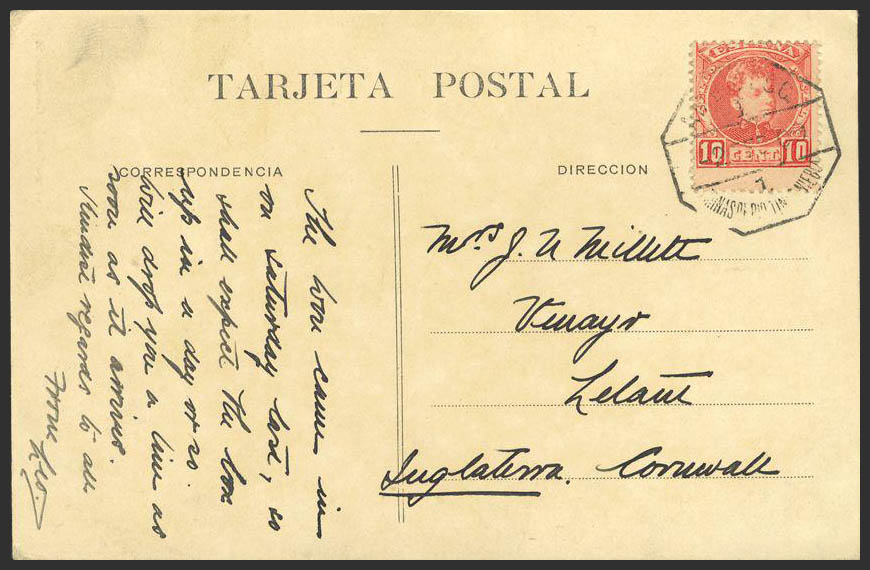 TARJETA POSTAL
CORRESPONDENCIA
DIRECCION
ESPAÑA
10 CENT. 10
The Wove came in
on saturday last, so
shall expect the box
up in a day or so.
Will drop you a line as
soon as it arrives.
Kindest regards to all
From Leo.
Mrs J. N Millett
Vinayr
Lelant
Inglaterra. Cornwall